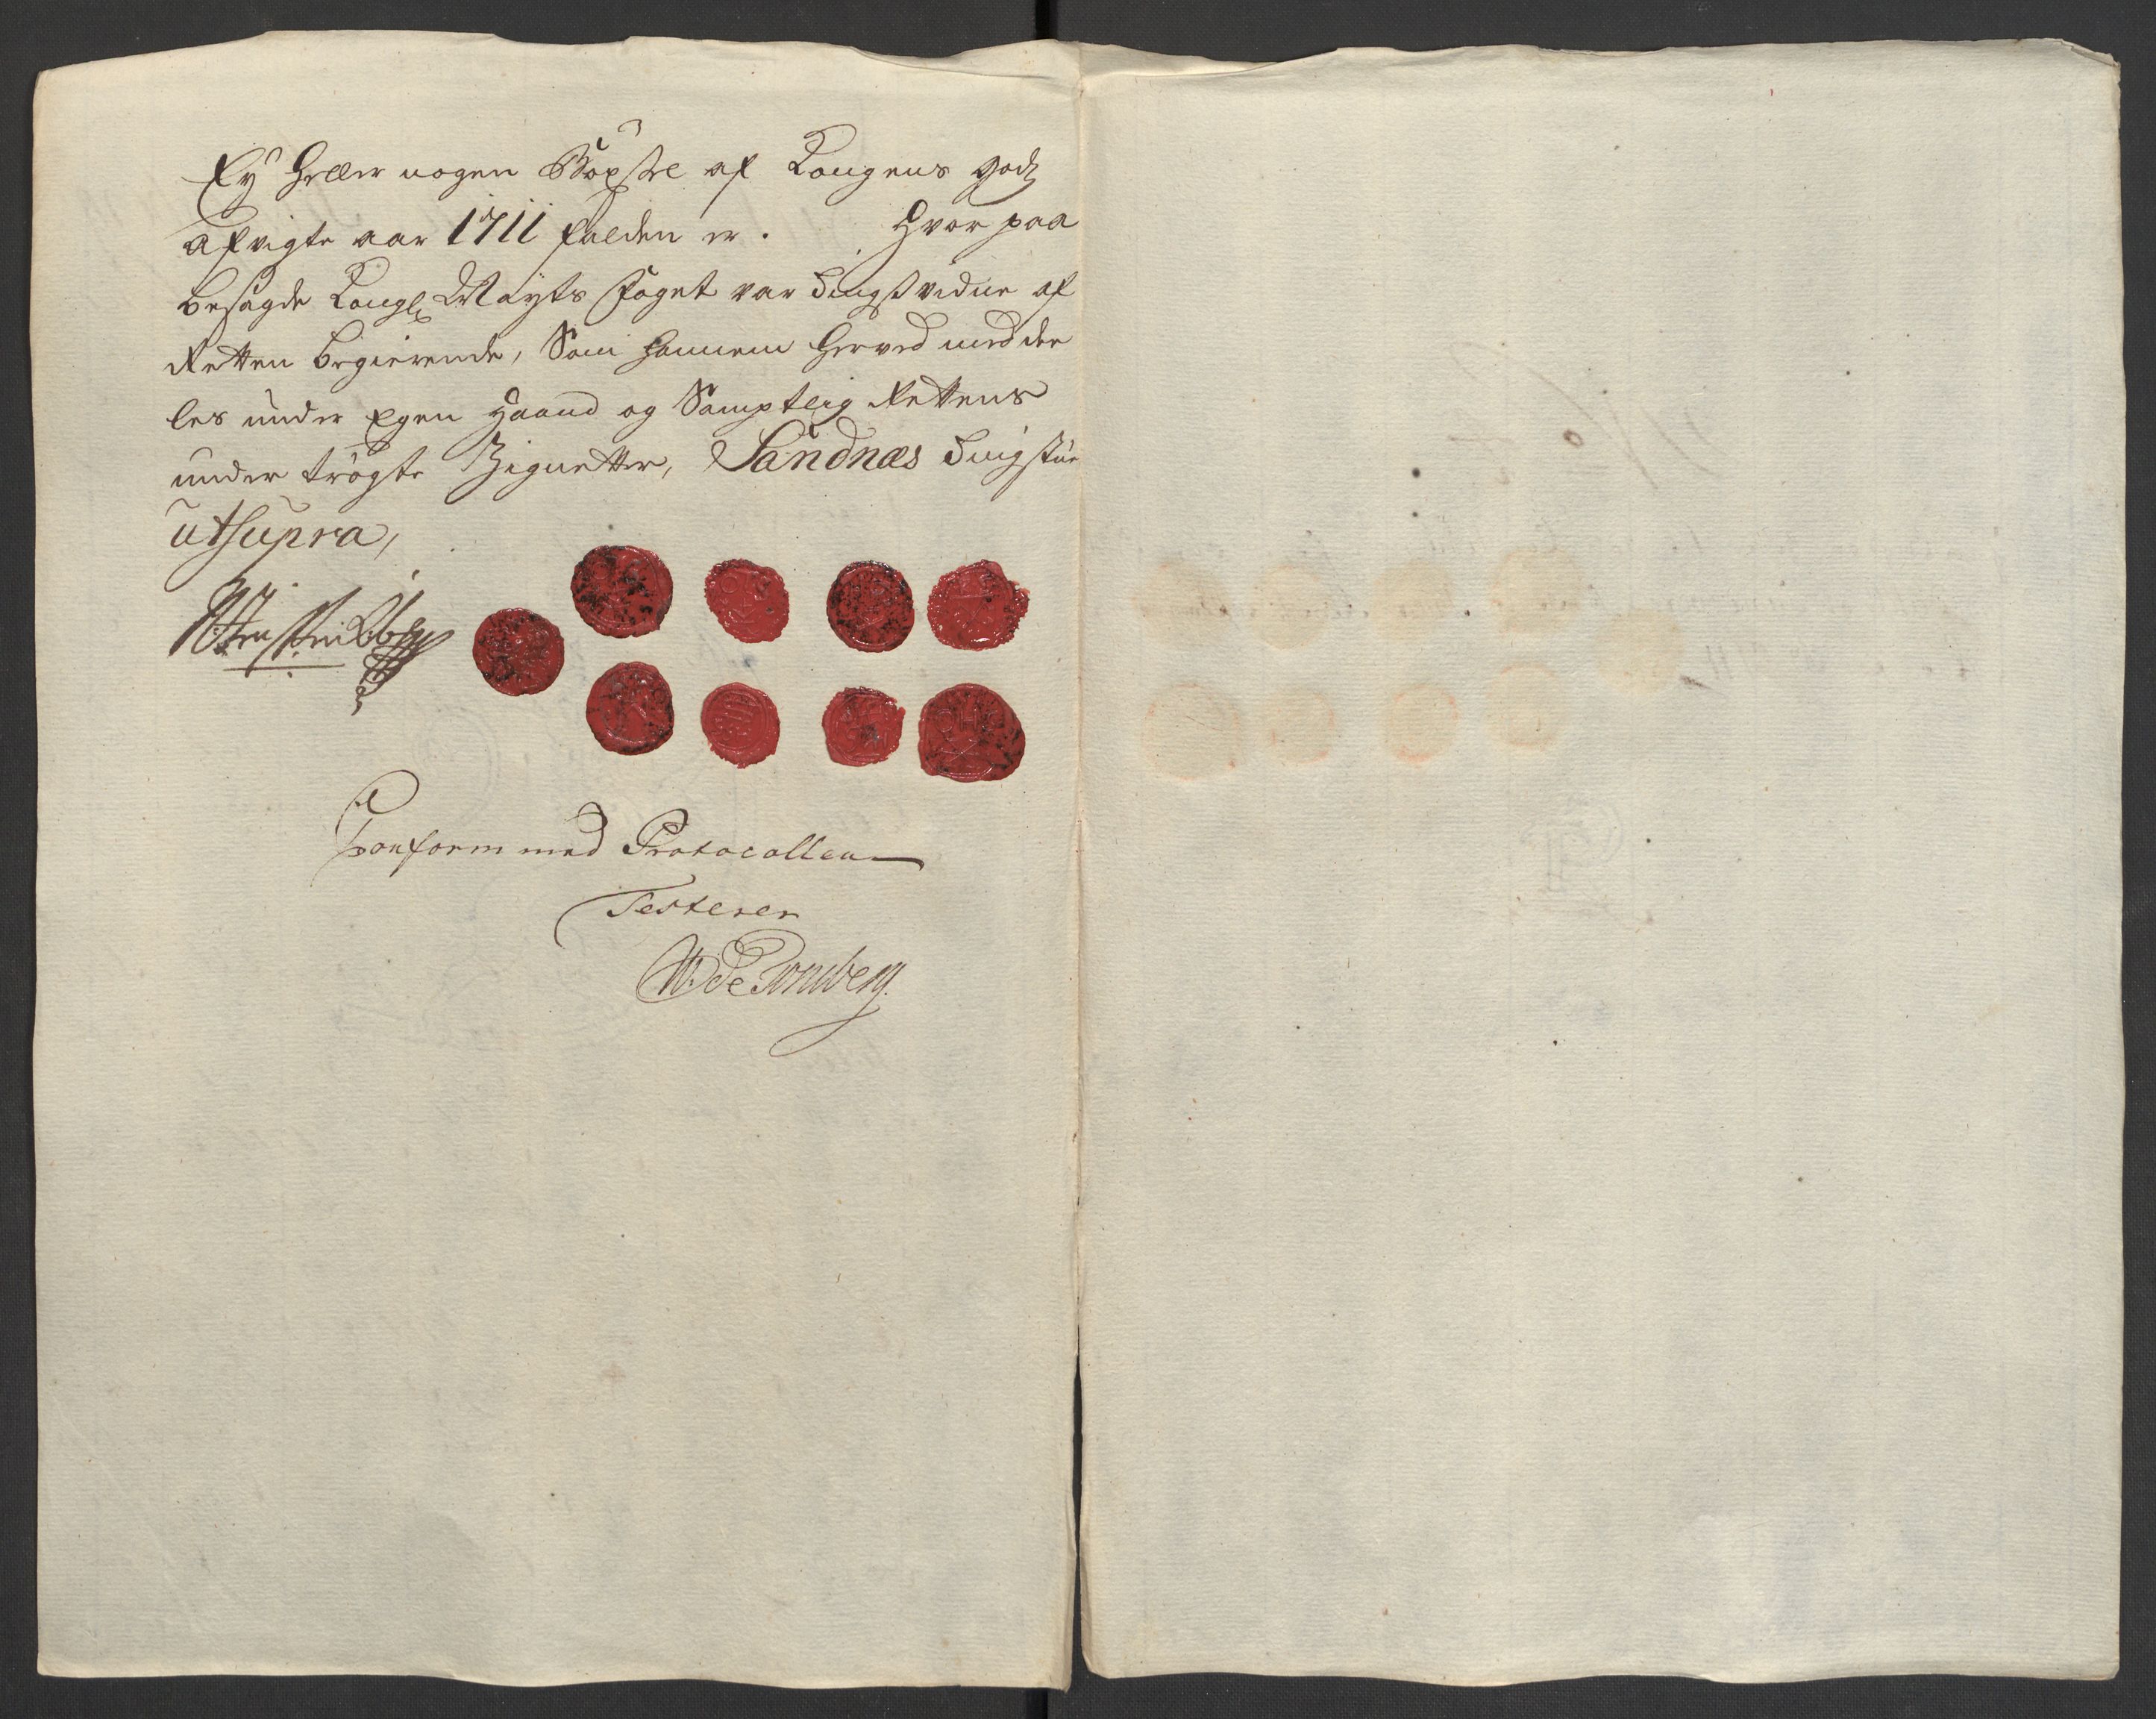 Ey heller nogen Böxsle af Kongens godtz
afvigte aar 1711 falden er. Hvor paa
besagde Kongl Mayts Foget var Tingsvidne af
Retten begierende, Som hannem herved medde
les under Egen Haand og Samptlig Rettens
under trögte Zignetter, Sandnæs Tingstue
ut supra,
Conform med Protocollen
Testerer